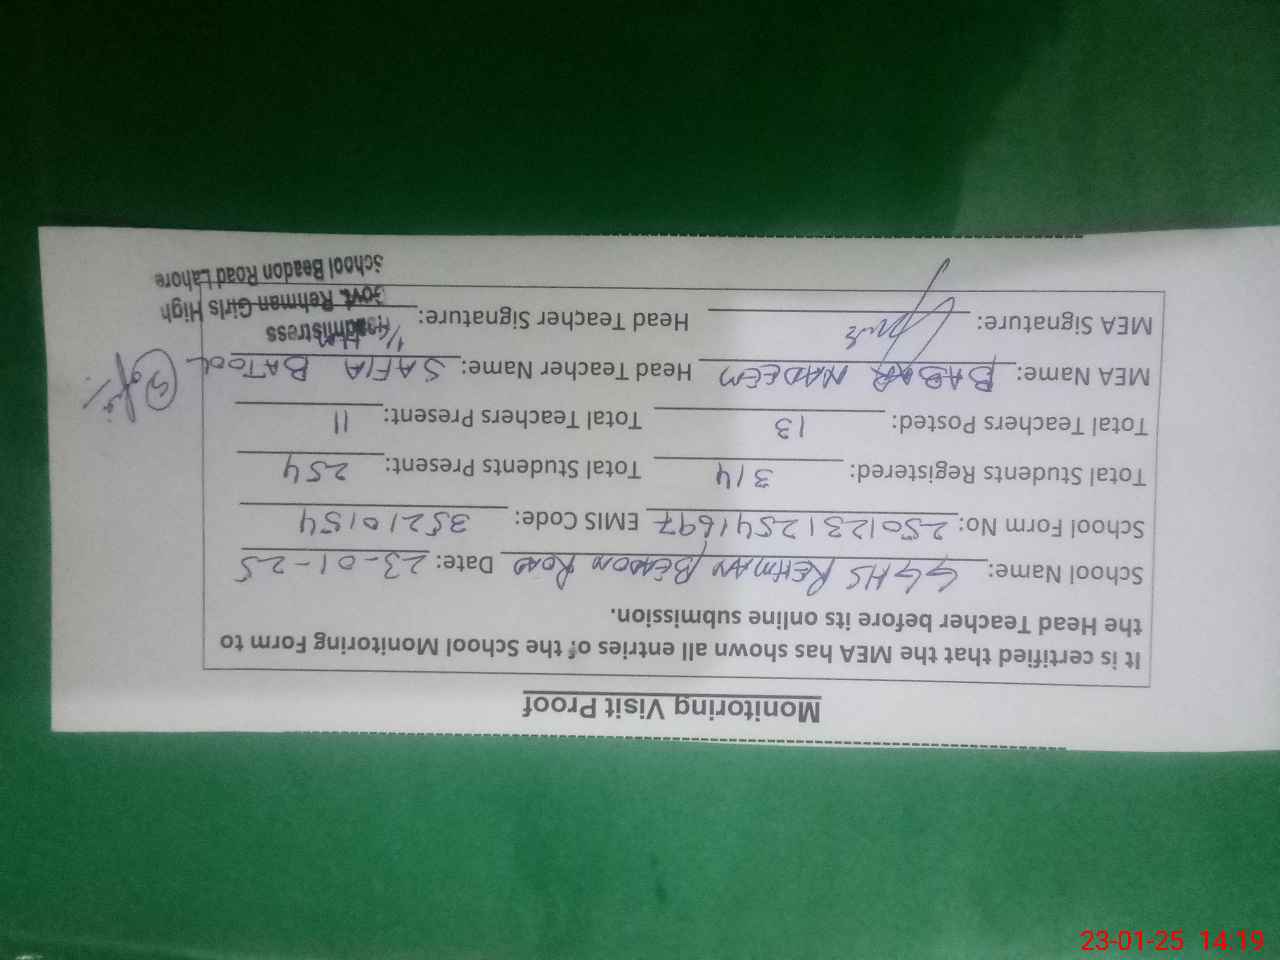 Monitoring Visit Proof
It is certified that the MEA has shown all entries of the School Monitoring Form to
the Head Teacher before its online submission.
School Name: GGHS REHMAN BEADON ROAD Date: 23-01-25
School Form No: 2501231254 1697 EMIS Code: 35210154
Total Students Registered: 314 Total Students Present: 254
Total Teachers Posted: 13 Total Teachers Present: 11
MEA Name: BABAR NADEEM Head Teacher Name: SAFIA BATOOL
MEA Signature: Head Teacher Signature:
Headmistress
Govt. Rehman Girls High
School Beadon Road Lahore
23-01-25 14:19